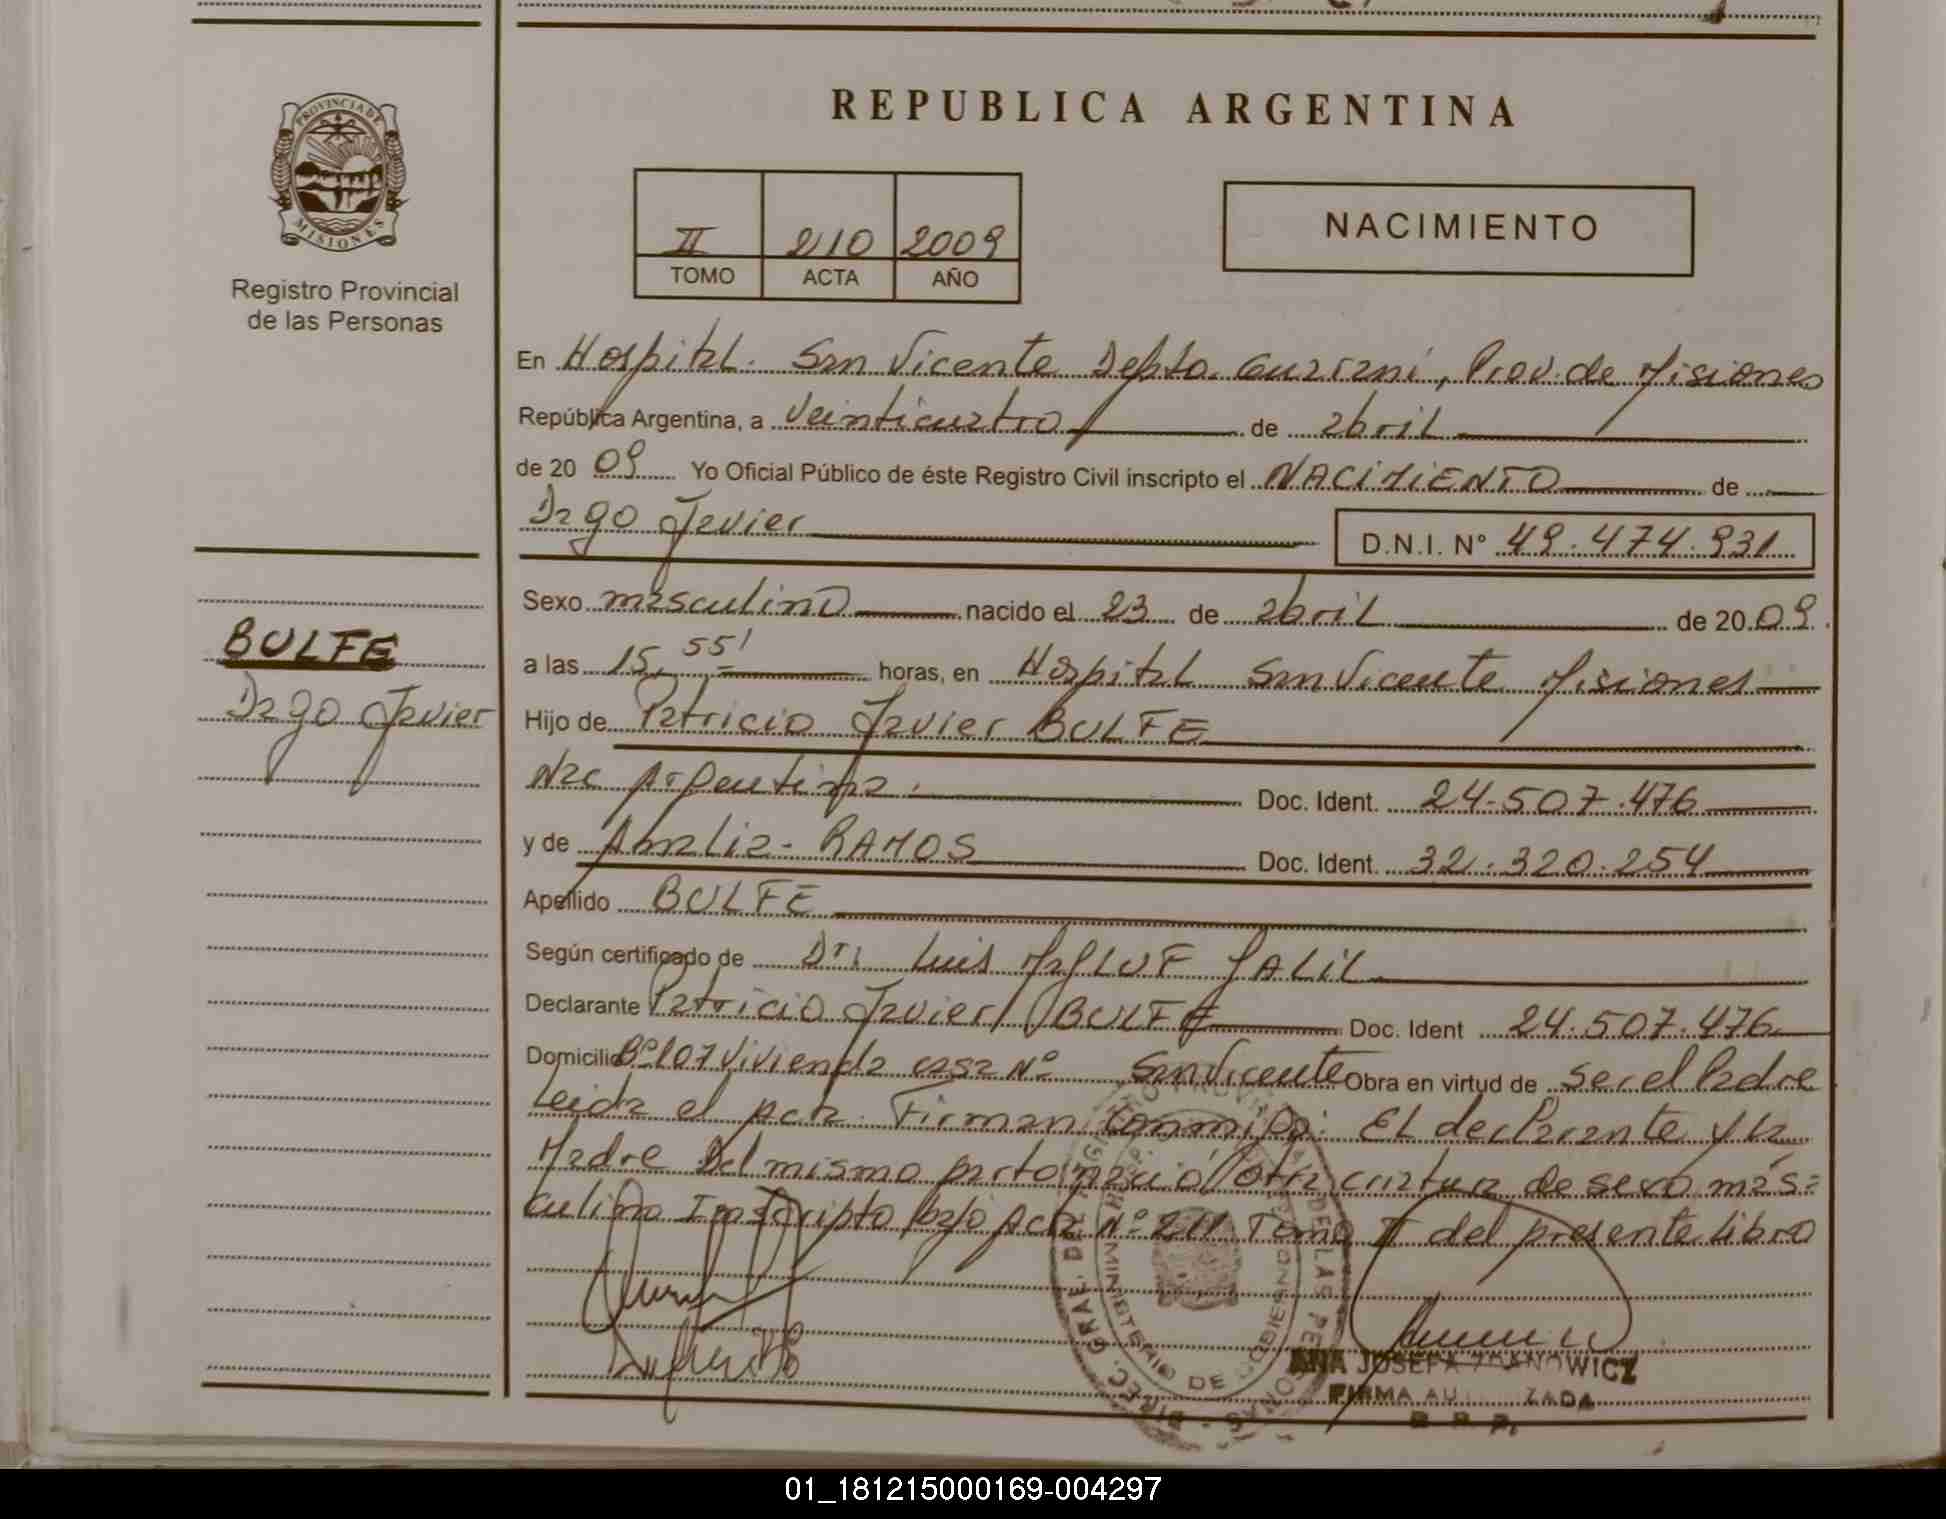 REPUBLICA ARGENTINA
PROVINCIA DE MISIONES
Registro Provincial
de las Personas
II 210 2009
TOMO ACTA AÑO
NACIMIENTO
En Hospital. San Vicente Depto. Guarani, Prov. de Misiones
República Argentina, a Veinticuatro de abril
de 20 09 Yo Oficial Público de éste Registro Civil inscripto el NACIMIENTO de
Dago Javier D.N.I. Nº 49.474.931
BULFE
Dago Javier
Sexo masculino nacido el 23 de abril de 20 09.
a las 15, 55' horas, en Hospital San Vicente Misiones
Hijo de Patricio Javier BULFE
Nac Argentina. Doc. Ident. 24-507.476
y de Amalia- RAMOS Doc. Ident. 32.320.254
Apellido BULFE
Según certificado de Dr. Luis JALIL
Declarante Patricio Javier BULFE Doc. Ident 24.507.476
Domicilio Bº 107 Vivienda casa Nº San Vicente Obra en virtud de ser el Padre
Leida el Acta. Firman conmigo: El declarante y la
Madre Del mismo parto nació otra criatura de sexo mas=
culino Inscripto bajo Acta Nº 211 Tomo II del presente libro
DIREC. GRAL. DEL REGISTRO PROVINCIAL DE LAS PERSONAS
MINISTERIO DE GOBIERNO
ANA JOSEFA ZDANOWICZ
FIRMA AUTORIZADA
R. P. P.
01_181215000169-004297